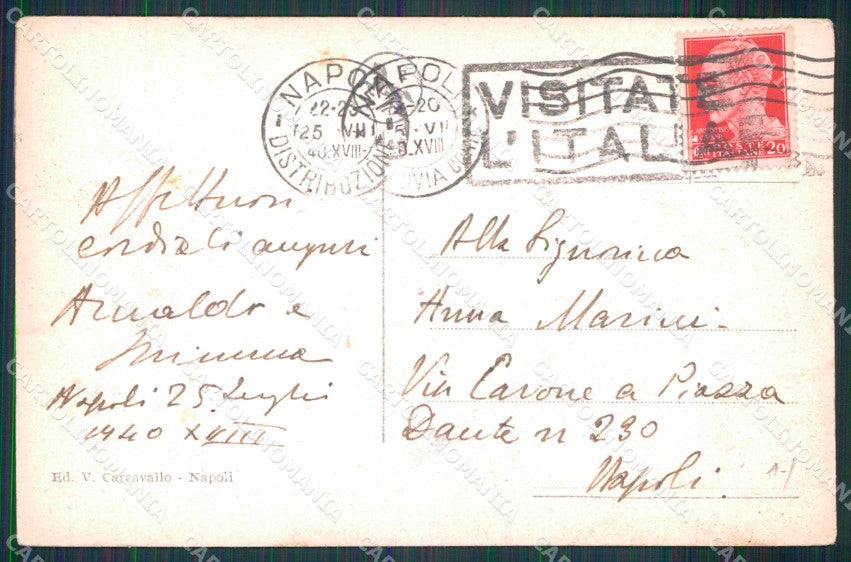 NAPOLI
22-23
25 VII
40.XVIII
DISTRIBUZIONE
NAPOLI
-20
XVIII
VISITATE
L'ITALIA
20
POSTE
ITALIANE
Affettuosi
cordiali auguri
Arnaldo e
Mimma
Napoli 25 Luglio
1940 XVIII
Alla Signorina
Anna Marini
Via Carone a Piazza
Dante n 230
Napoli.
Ed. V. Carcavallo - Napoli
CARTOLINOMANIA